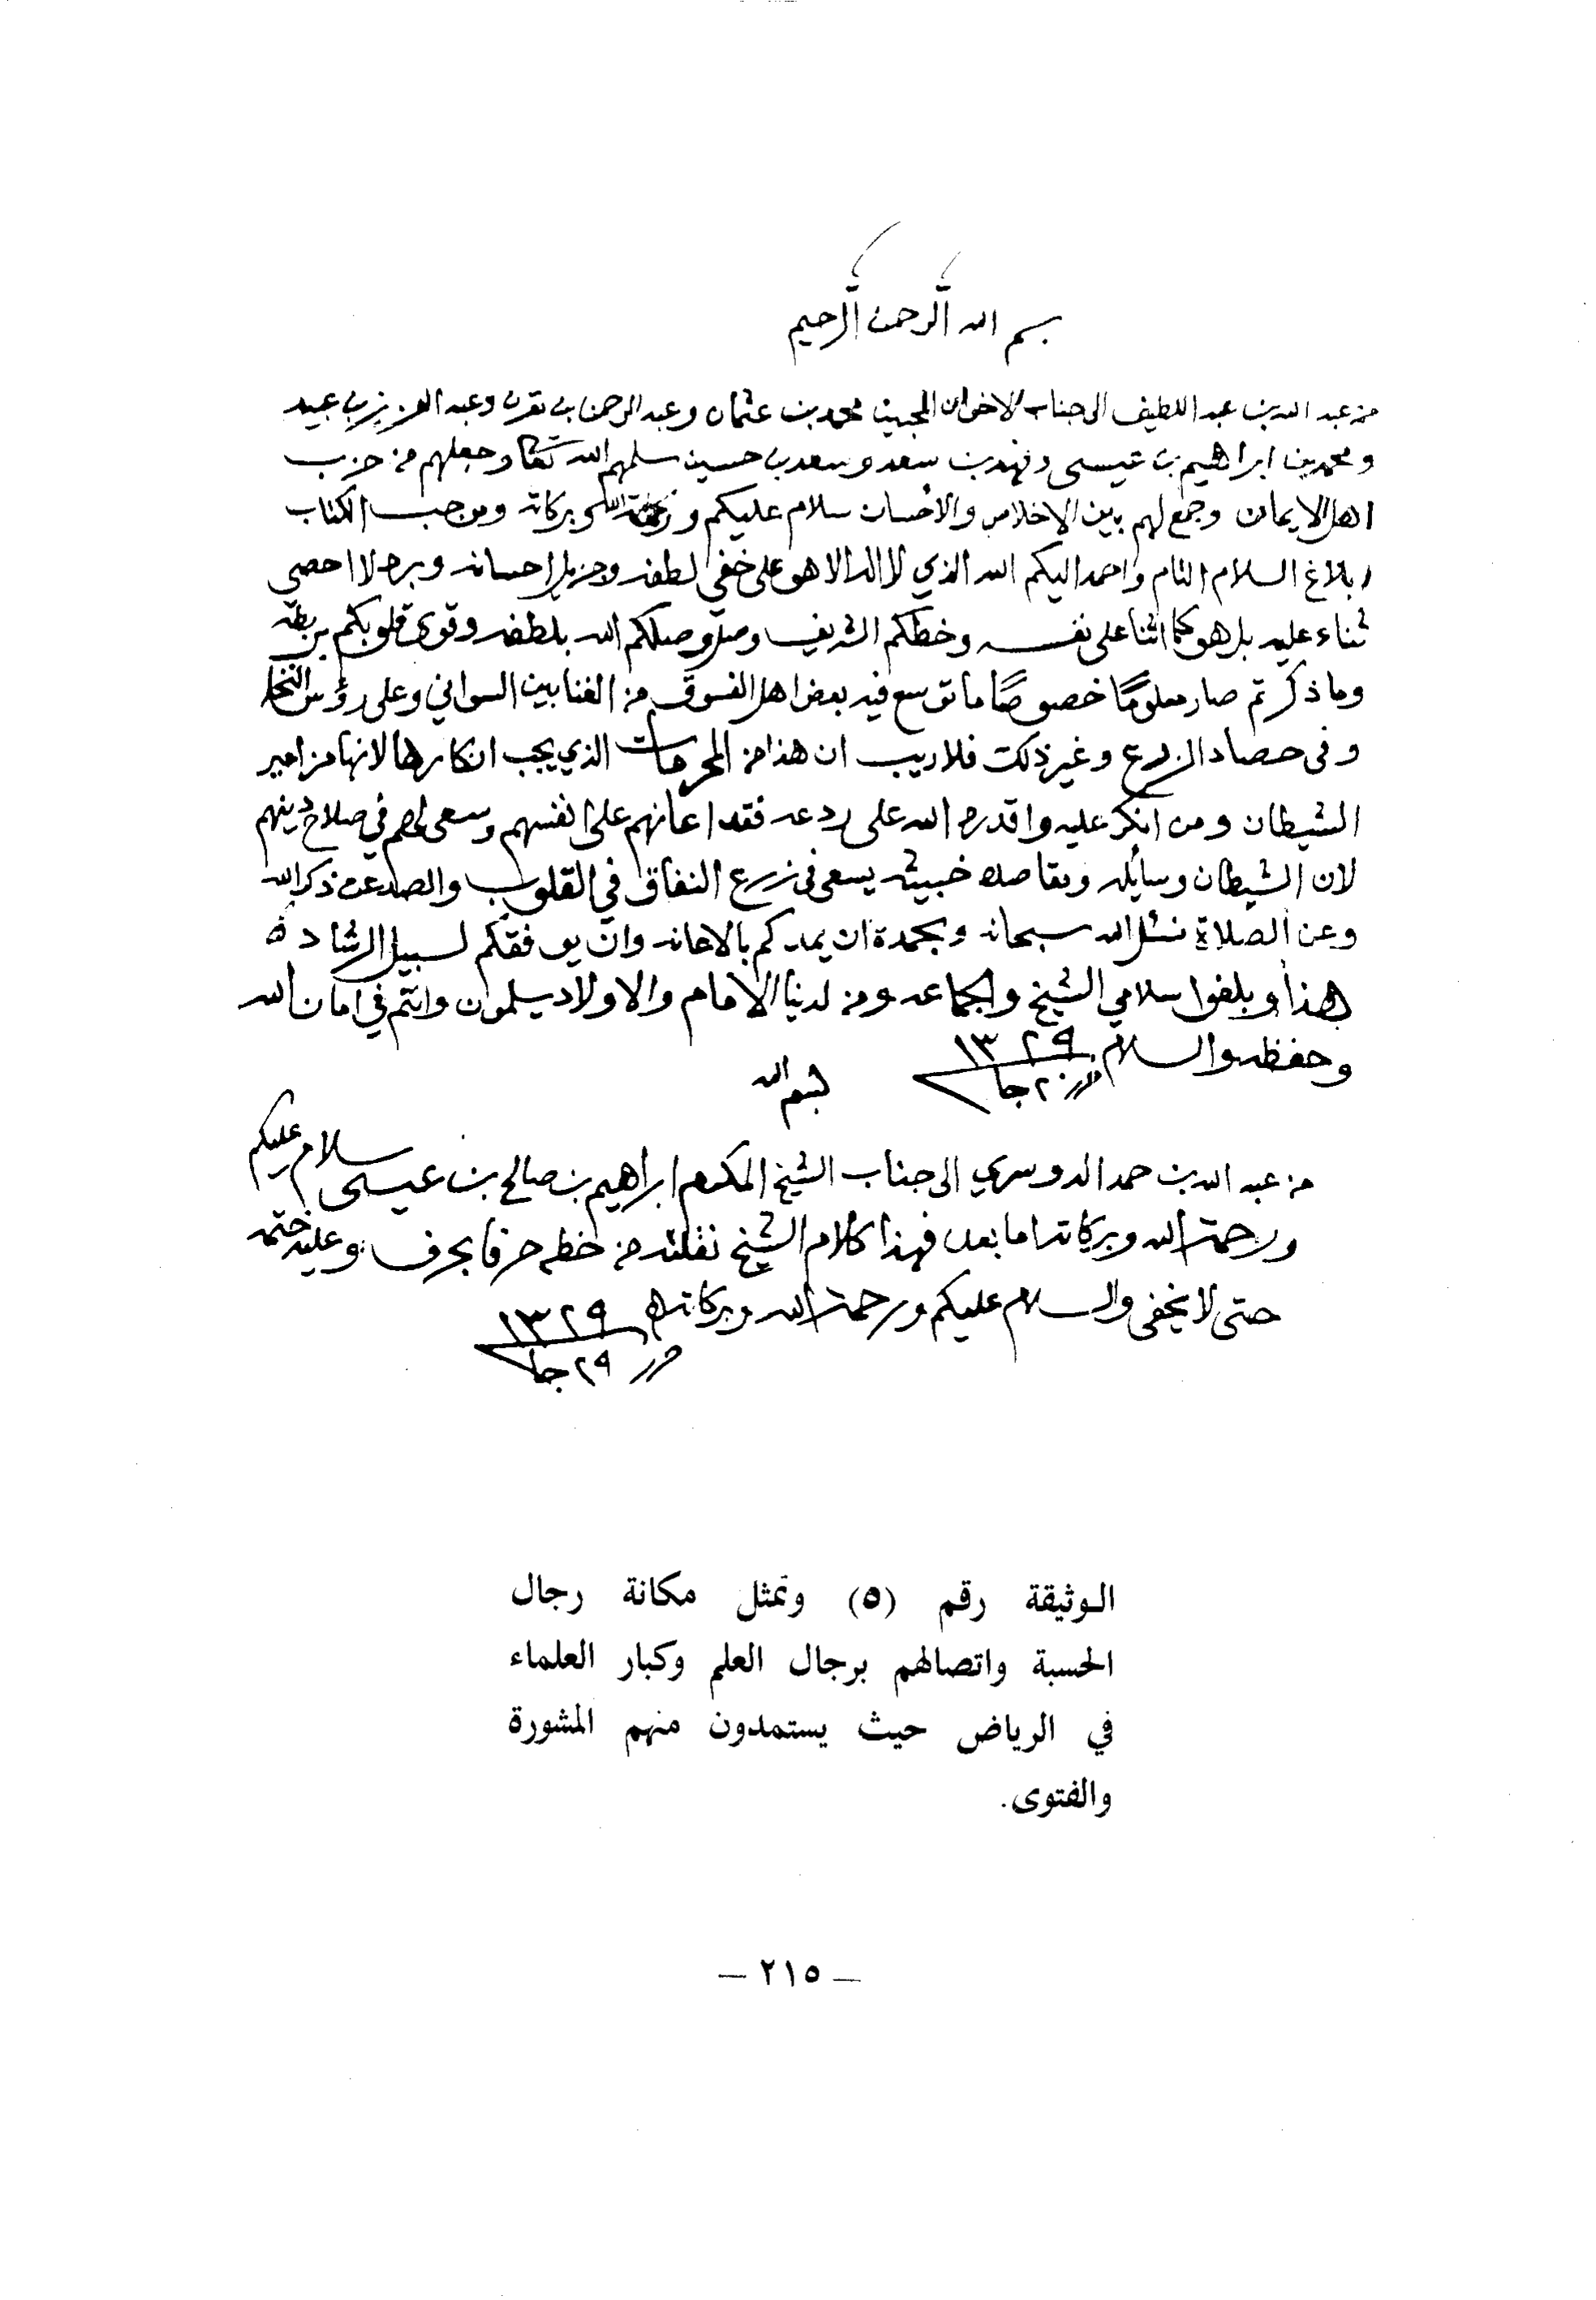 بسم الله الرحمن الرحيم
من عبد الله بن عبد اللطيف الى جناب الاخوان المحبين محمد بن عثمان وعبد الرحمن بن مقرن وعبد العزيز بن عبيد
ومحمد بن ابراهيم بن عيسى وفهد بن سعد وسعد بن حسين سلمهم الله تعا وجعلهم من حزب
اهل الايمان وجمع لهم بين الاخلاص والأحسان سلام عليكم ورحمة الله وبركاته وموجب الكتاب
ابلاغ السلام التام واحمد اليكم الله الذي لا اله الا هو على خفي لطفه وجزيل احسانه وبره لا احصي
ثناء عليه بل هو كما اثنا على نفسه وخطكم الشريف وصل وصلكم الله بلطفه وقوى قلوبكم
وما ذكرتم صار معلومًا خصوصًا ما توسع فيه بعض اهل الفسوق من الغنا بين السواني وعلى رؤس النخل
وفي حصاد الزرع وغير ذلك فلا ريب ان هذا من المحرمات الذي يجب انكارها لانها مزامير
الشيطان ومن انكر عليه واقدره الله على ردعه فقد اعانهم على انفسهم وسعى لهم في صلاح دينهم
لان الشيطان وسايله ومقاصده خبيثه يسعى في زرع النفاق في القلوب والصد عن ذكر الله
وعن الصلاة نسئل الله سبحانه وبحمده ان يمدكم بالاعانه وان يوفقكم لسبيل الرشاد ه
هذا وبلغوا سلامي الشيخ والجماعه ومن لدنيا الامام والاولاد يسلمون وانتم في امان الله
وحفظه والسلام ١٣٢٩
٢٠ جا
بسم الله
من عبد الله بن حمد الدوسري الى جناب الشيخ المكرم ابراهيم بن صالح بن عيسى سلام عليكم
ورحمة الله وبركاته اما بعد فهذا كلام الشيخ نقلته من خطه حرفا بحرف وعليه ختمه
حتى لا يخفى والسلام عليكم ورحمة الله وبركاته ١٣٢٩
٢٩ جا
الوثيقة رقم (٥) وتمثل مكانة رجال
الحسبة واتصالهم برجال العلم وكبار العلماء
في الرياض حيث يستمدون منهم المشورة
والفتوى.
— ٢١٥ —